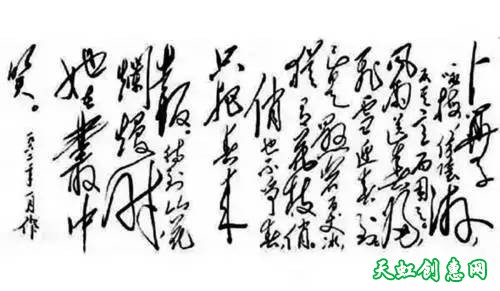 卜算子
咏梅
陆游
反其意而用之
风雨送春归
飞雪迎春到
已是悬崖百丈冰
犹有花枝俏
俏也不争春
只把春来
报。待到山花
烂熳时
她在丛中
笑。
天虹创意网